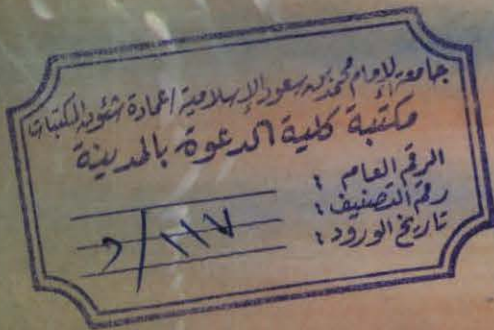 جامعة الإمام محمد بن سعود الإسلامية / عمادة شئون المكتبات
مكتبة كلية الدعوة بالمدينة
الرقم العام :
رقم التصنيف :
تاريخ الورود :
١١٧/